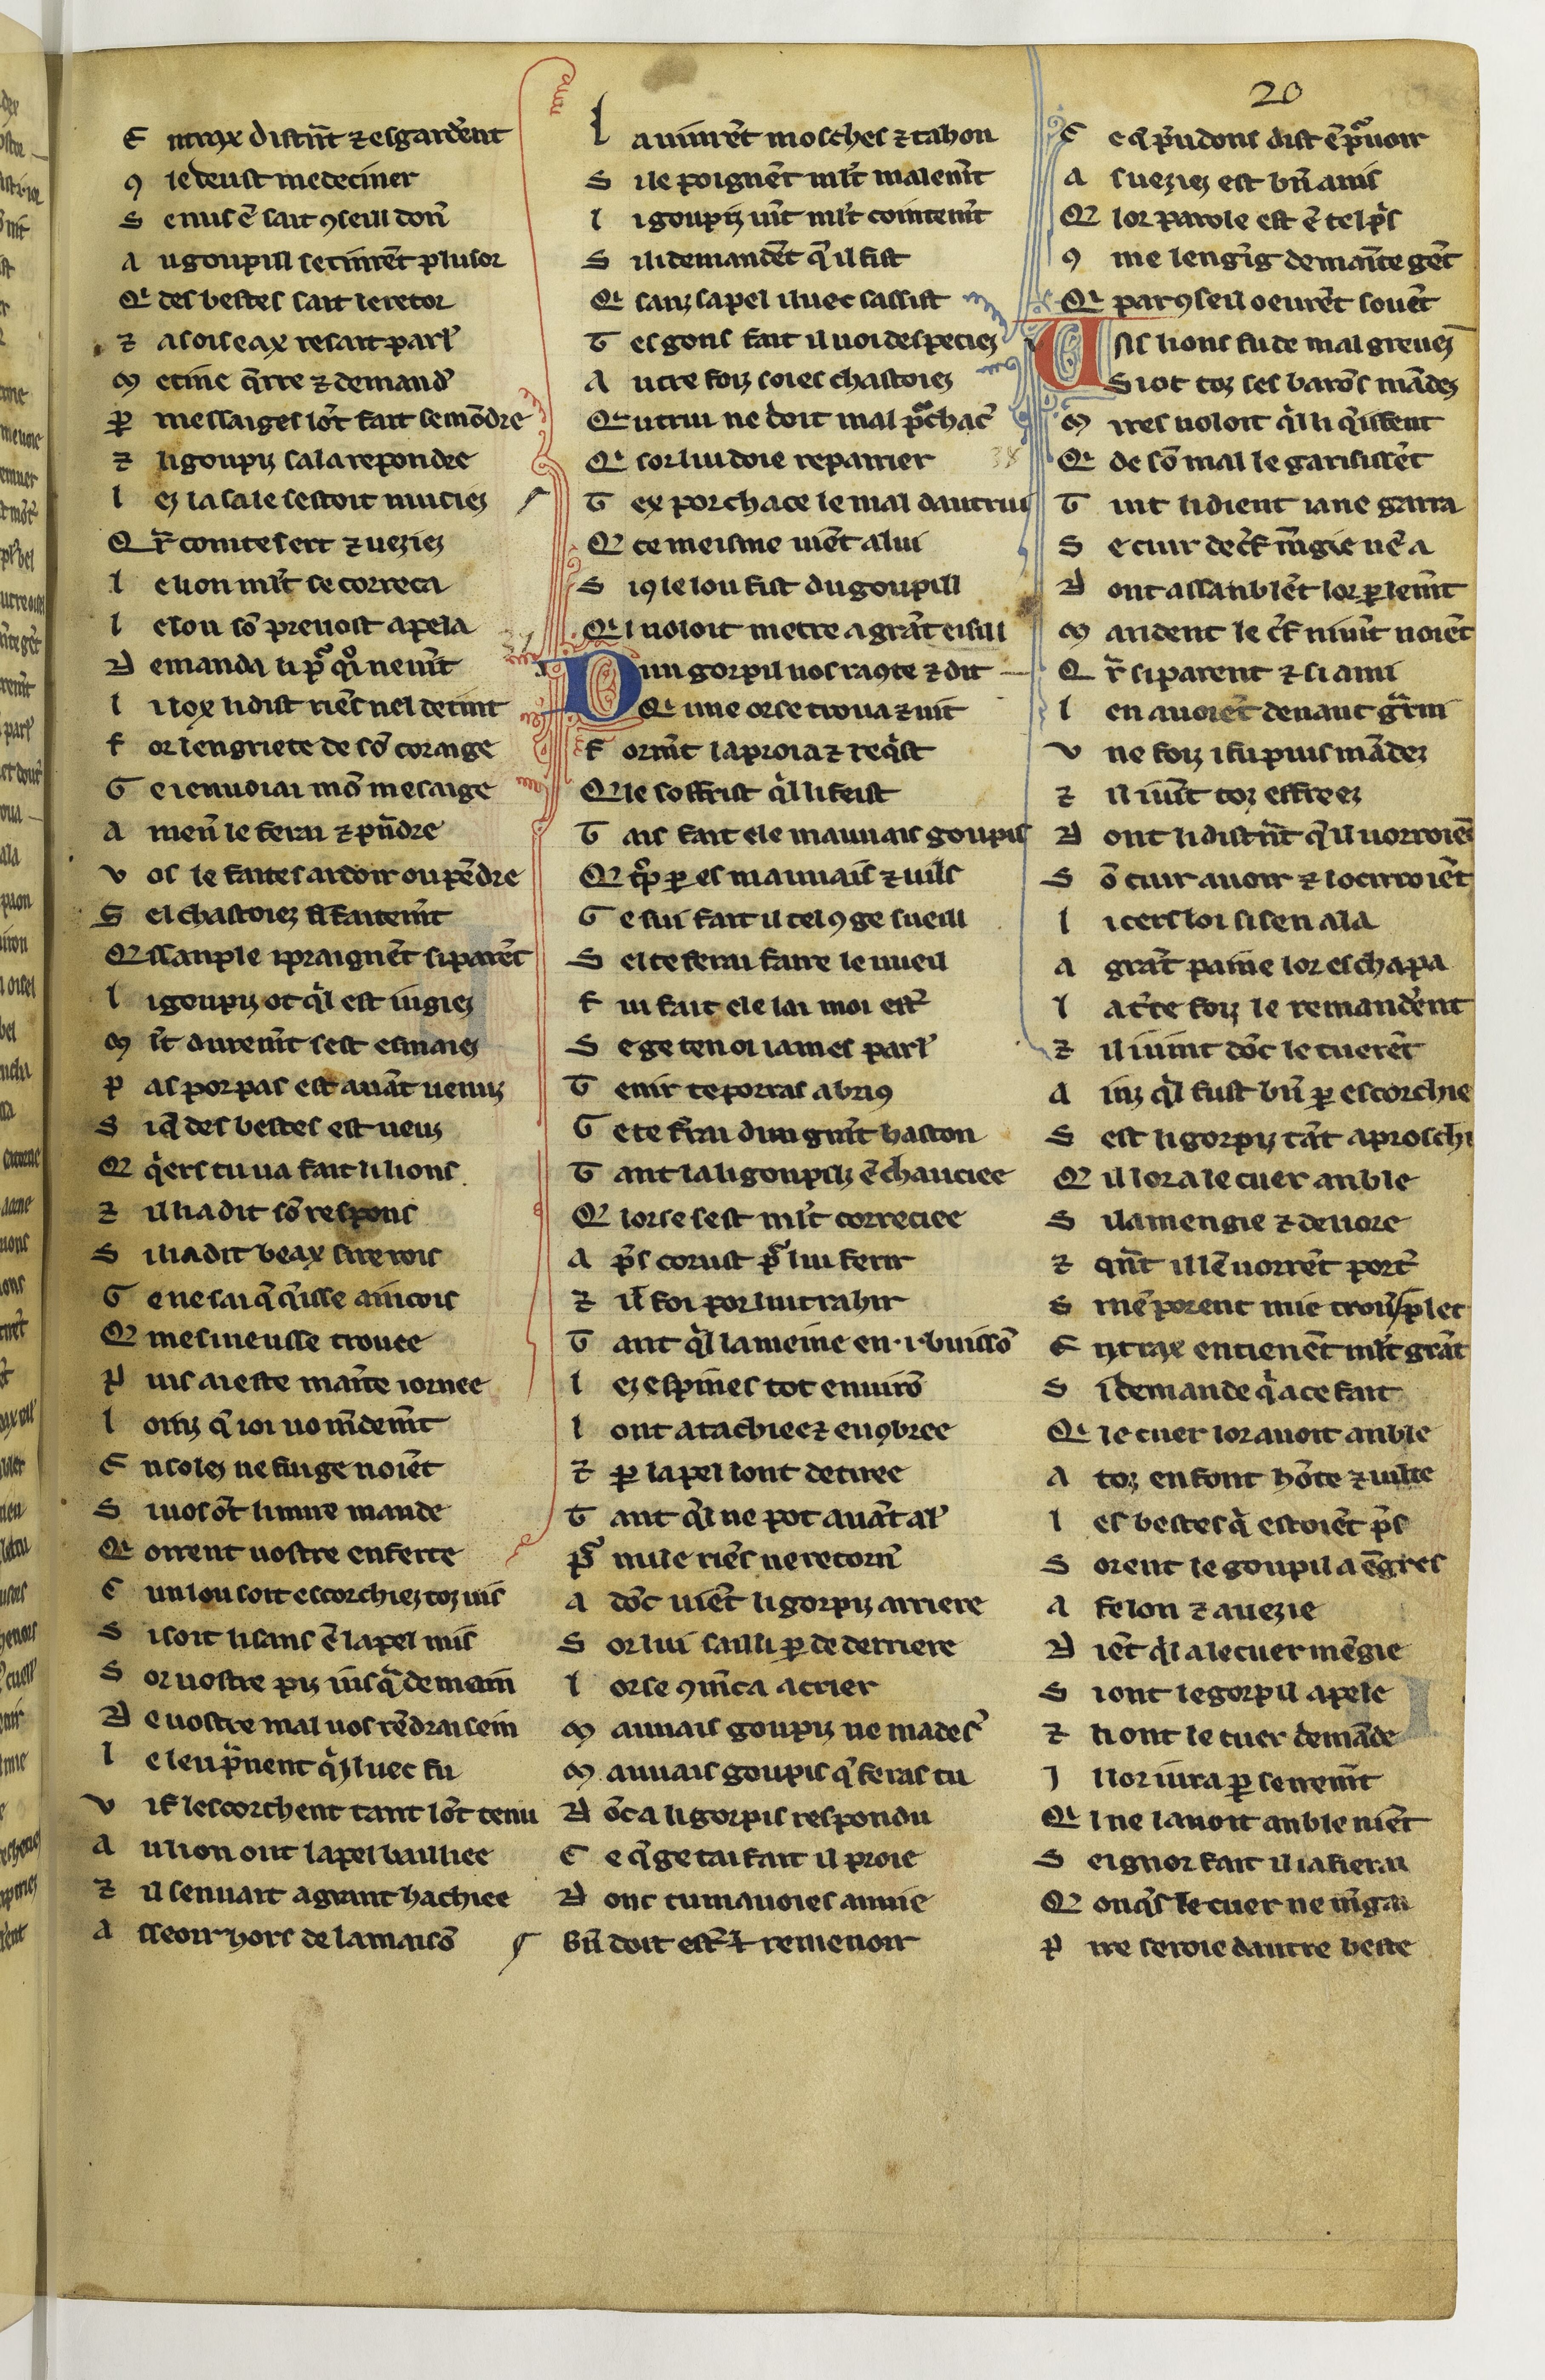 20
E ntrax distrent ⁊ esgarderent
9 le deust medeciner
S e nus ē sait 9seill doner
A u goupill se tinrēt plusor
Q des bestes sait le retor
⁊ as oiseax resait parl'
M ecine q̄rre ⁊ demand'
P messaiges lōt fait semōdre
⁊ li goupiz sala repondre
L ez la sale sestoit muciez
Q r̄ cointes ert ⁊ veziez
L e lion ml̄t se correca
L e lou sō prevost apela
D emanda li
I l ox li dist riēs nel detint
F or lengriete de sō coraige
G e i envoiai mō mesaige
A men le ferai ⁊ pn̄dre
V os le faites ardoir ou pēdre
S el chastoiez si faitem̄t
Q ssanple i praignēt si parēt
L i goupiz ot q̄l est iugiez
M l̄t durem̄t sest esmaiez
P as por pas est avāt venuz
S i q̄ des bestes est veuz
Q q̄ers tu va fait li lions
⁊ il li a dit sō respons
S il li a dit beax sire rois
G e ne sai q̄ q̄isse aincois
Q mesine usse trovee
P uis ai este mainte iornee
L oniz q̄ ioi vo m̄dem̄t
E n coles ne fu ge noiēt
S i vos ōt li mire mande
Q oirent vostre enferte
C un lou soit escorchiez toz vis
S i soit li sans ē la pel mis
S or vostre piz iusq̄ demain
D e vostre mal vos rēdrai sein
L e leu p̄nent q̄ iluec fu
V if lescorchent tant lōt tenu
A u lion ont la pel bailliee
⁊ il sen vait a grant hachiee
A sseoir hors de la maisō
L a vinrēt mosches ⁊ tahon
S i le poignēt ml̄t malem̄t
L i goupiz vīt ml̄t cointem̄t
S i li demandēt q̄ il fist
Q sanz sa pel iluec sassist
T es gons fait il voi despeciez
A utre foiz soies chastoiez
Q utrui ne doit mal p̄chac'
Q sor lui doie repairier
38
T ex porchace le mal dautrui
Q ce meisme viēt a lui
S i 9 le lou fist du goupill
Q l voloit metre a grāt eissill
37
D un gorpil vos ra9te ⁊ dit
Q une orse trova ⁊ vit
F orm̄t la proia ⁊ req̄st
Q le soffrist q̄l li feist
T ais fait ele mauvais goupis
Q par es mauvais ⁊ vils
G e sui fait il tel 9 ge sueill
S el te ferai faire le vueil
F ui fait ele lai moi est'
S e ge ten oi iames parl'
T enir te porras a bri9
G e te ferrai dun grāt baston
T ant la li goupilz ēchauciee
Q lorse sest ml̄t correciee
A p̄s corust p̄ lui ferir
⁊ il foi por lui trahir
T ant q̄l la meine en .i. buissō
L ez espines tot envirō
L ont atachiee ⁊ en9bree
⁊ p̱ la pel lont detiree
T ant q̄l ne pot avāt al'
P nule riēs ne retorn'
A dōc viēt li gorpiz arriere
S or lui sailli p̱ de derriere
L orse 9mēca a crier
M auvais goupiz ne mades'
M auvais goupis q̄ feras tu
D ōc a li gorpis respondu
C e q̄ ge tai fait il proie
D onc tu mavoies anuie
B n̄ doit est' remenoir
C e q̄ p̄udons dist ē p̄ voir
A s veziez est bn̄ avis
Q lor parole est ē tel p̄s
9 me lengīg de maīte gēt
Q par 9seil oevrēt sovēt
U ns lions fu de mal grevez
S i ot toz ses barōs mādez
M ires voloit q̄l li q̄issent
Q de sō mal le garisissēt
T uit li dient ia ne garra
S e cuer de c̄f mangie nē a
D ont assanblēt lor p̱lem̄t
M andent le c̄f ni vīt noiēt
Q r̄ si parent ⁊ si ami
L en avoiēt devant garni
V ne foiz i fu puis mādez
⁊ il i vīt toz effreez
D ont li distrēt q̄ il vorroiēt
S ō cuer avoir ⁊ locirroiēt
L i cers loi si sen ala
A grāt paine lor eschapa
L a t'ce foiz le remanderent
⁊ il i vint dōc le tuerēt
A inz q̄l fust bn̄ p̱ escorchie
S est li gorpiz tāt aproschi
Q il lor a le cuer anble
S i la mengie ⁊ devore
⁊ qn̄t il lē vorrēt port'
S i nē porent mie trover
E ntrax en tienēt ml̄t grāt
S i demande q̄ a ce fait
Q le cuer lor avoit anble
A toz en font hōte ⁊ vilte
L es bestes q̄ estoiēt p̄s
S orent le goupil a ēgres
A felon ⁊ a vezie
D iēt q̄l a le cuer mēgie
S i ont le gorpil apele
⁊ li ont le cuer demāde
I l lor iura p̱ serrem̄t
Q l ne lavoit anble niēt
S eignor fait il ia fierai
Q onq̄s le cuer ne m̄gai
P ire seroie dautre beste